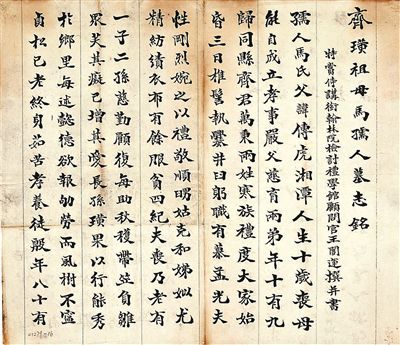 齊璜祖母馬孺人墓志銘
特賞侍講銜翰林院檢討禮學館顧問官王闓運撰并書
孺人馬氏父諱傳虎湘潭人生十歲喪母
能自成立孝事嚴父慈育兩弟年十有九
歸同縣齊君萬秉兩姓寒族禮度大家始
昏三日椎髻執爨井臼躬職有慕孟光夫
性剛烈婉之以禮敬順明姑克和娣姒尤
精紡績衣布有餘服貧四紀夫喪乃老有
一子二孫慈勤顧復每助秋穫帶並負雛
眾笑其癡己增其愛長孫璜果以行能秀
於鄉里每述懿德欲報劬勞而風樹不寧
貞松已老終身茹苦孝養徒殷年八十有